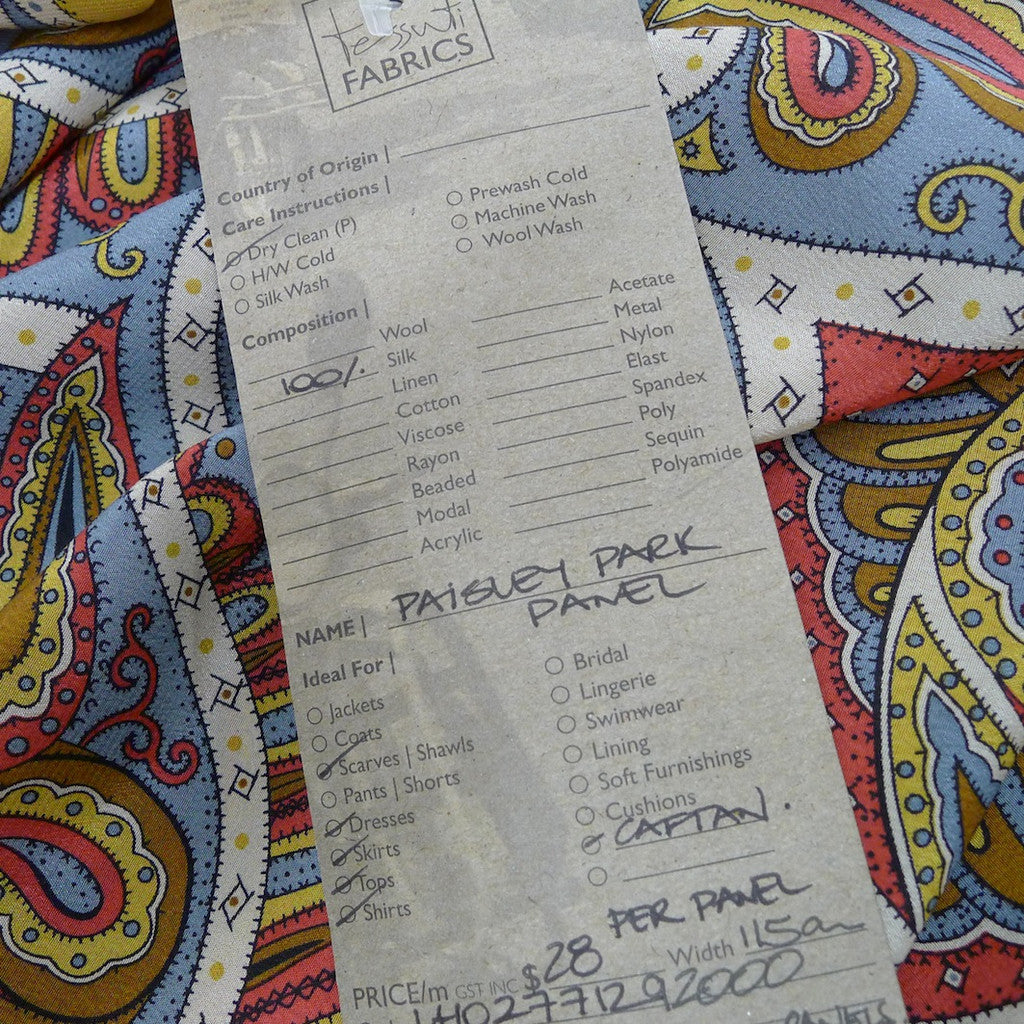 tessuti
FABRICS
Country of Origin |
Care Instructions |
Dry Clean (P)
H/W Cold
Silk Wash
Prewash Cold
Machine Wash
Wool Wash
Composition |
Wool
100%. Silk
Linen
Cotton
Viscose
Rayon
Beaded
Modal
Acrylic
Acetate
Metal
Nylon
Elast
Spandex
Poly
Sequin
Polyamide
NAME | PAISLEY PARK
PANEL
Ideal For |
Jackets
Coats
Scarves | Shawls
Pants | Shorts
Dresses
Skirts
Tops
Shirts
Bridal
Lingerie
Swimwear
Lining
Soft Furnishings
Cushions
CAFTAN.
PER PANEL
PRICE/m GST INC $28 Width 115cm
PANELS